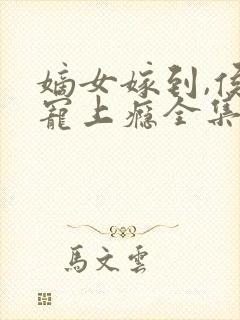 嫡女嫁到,侯
寵上癮全集
馬文雲